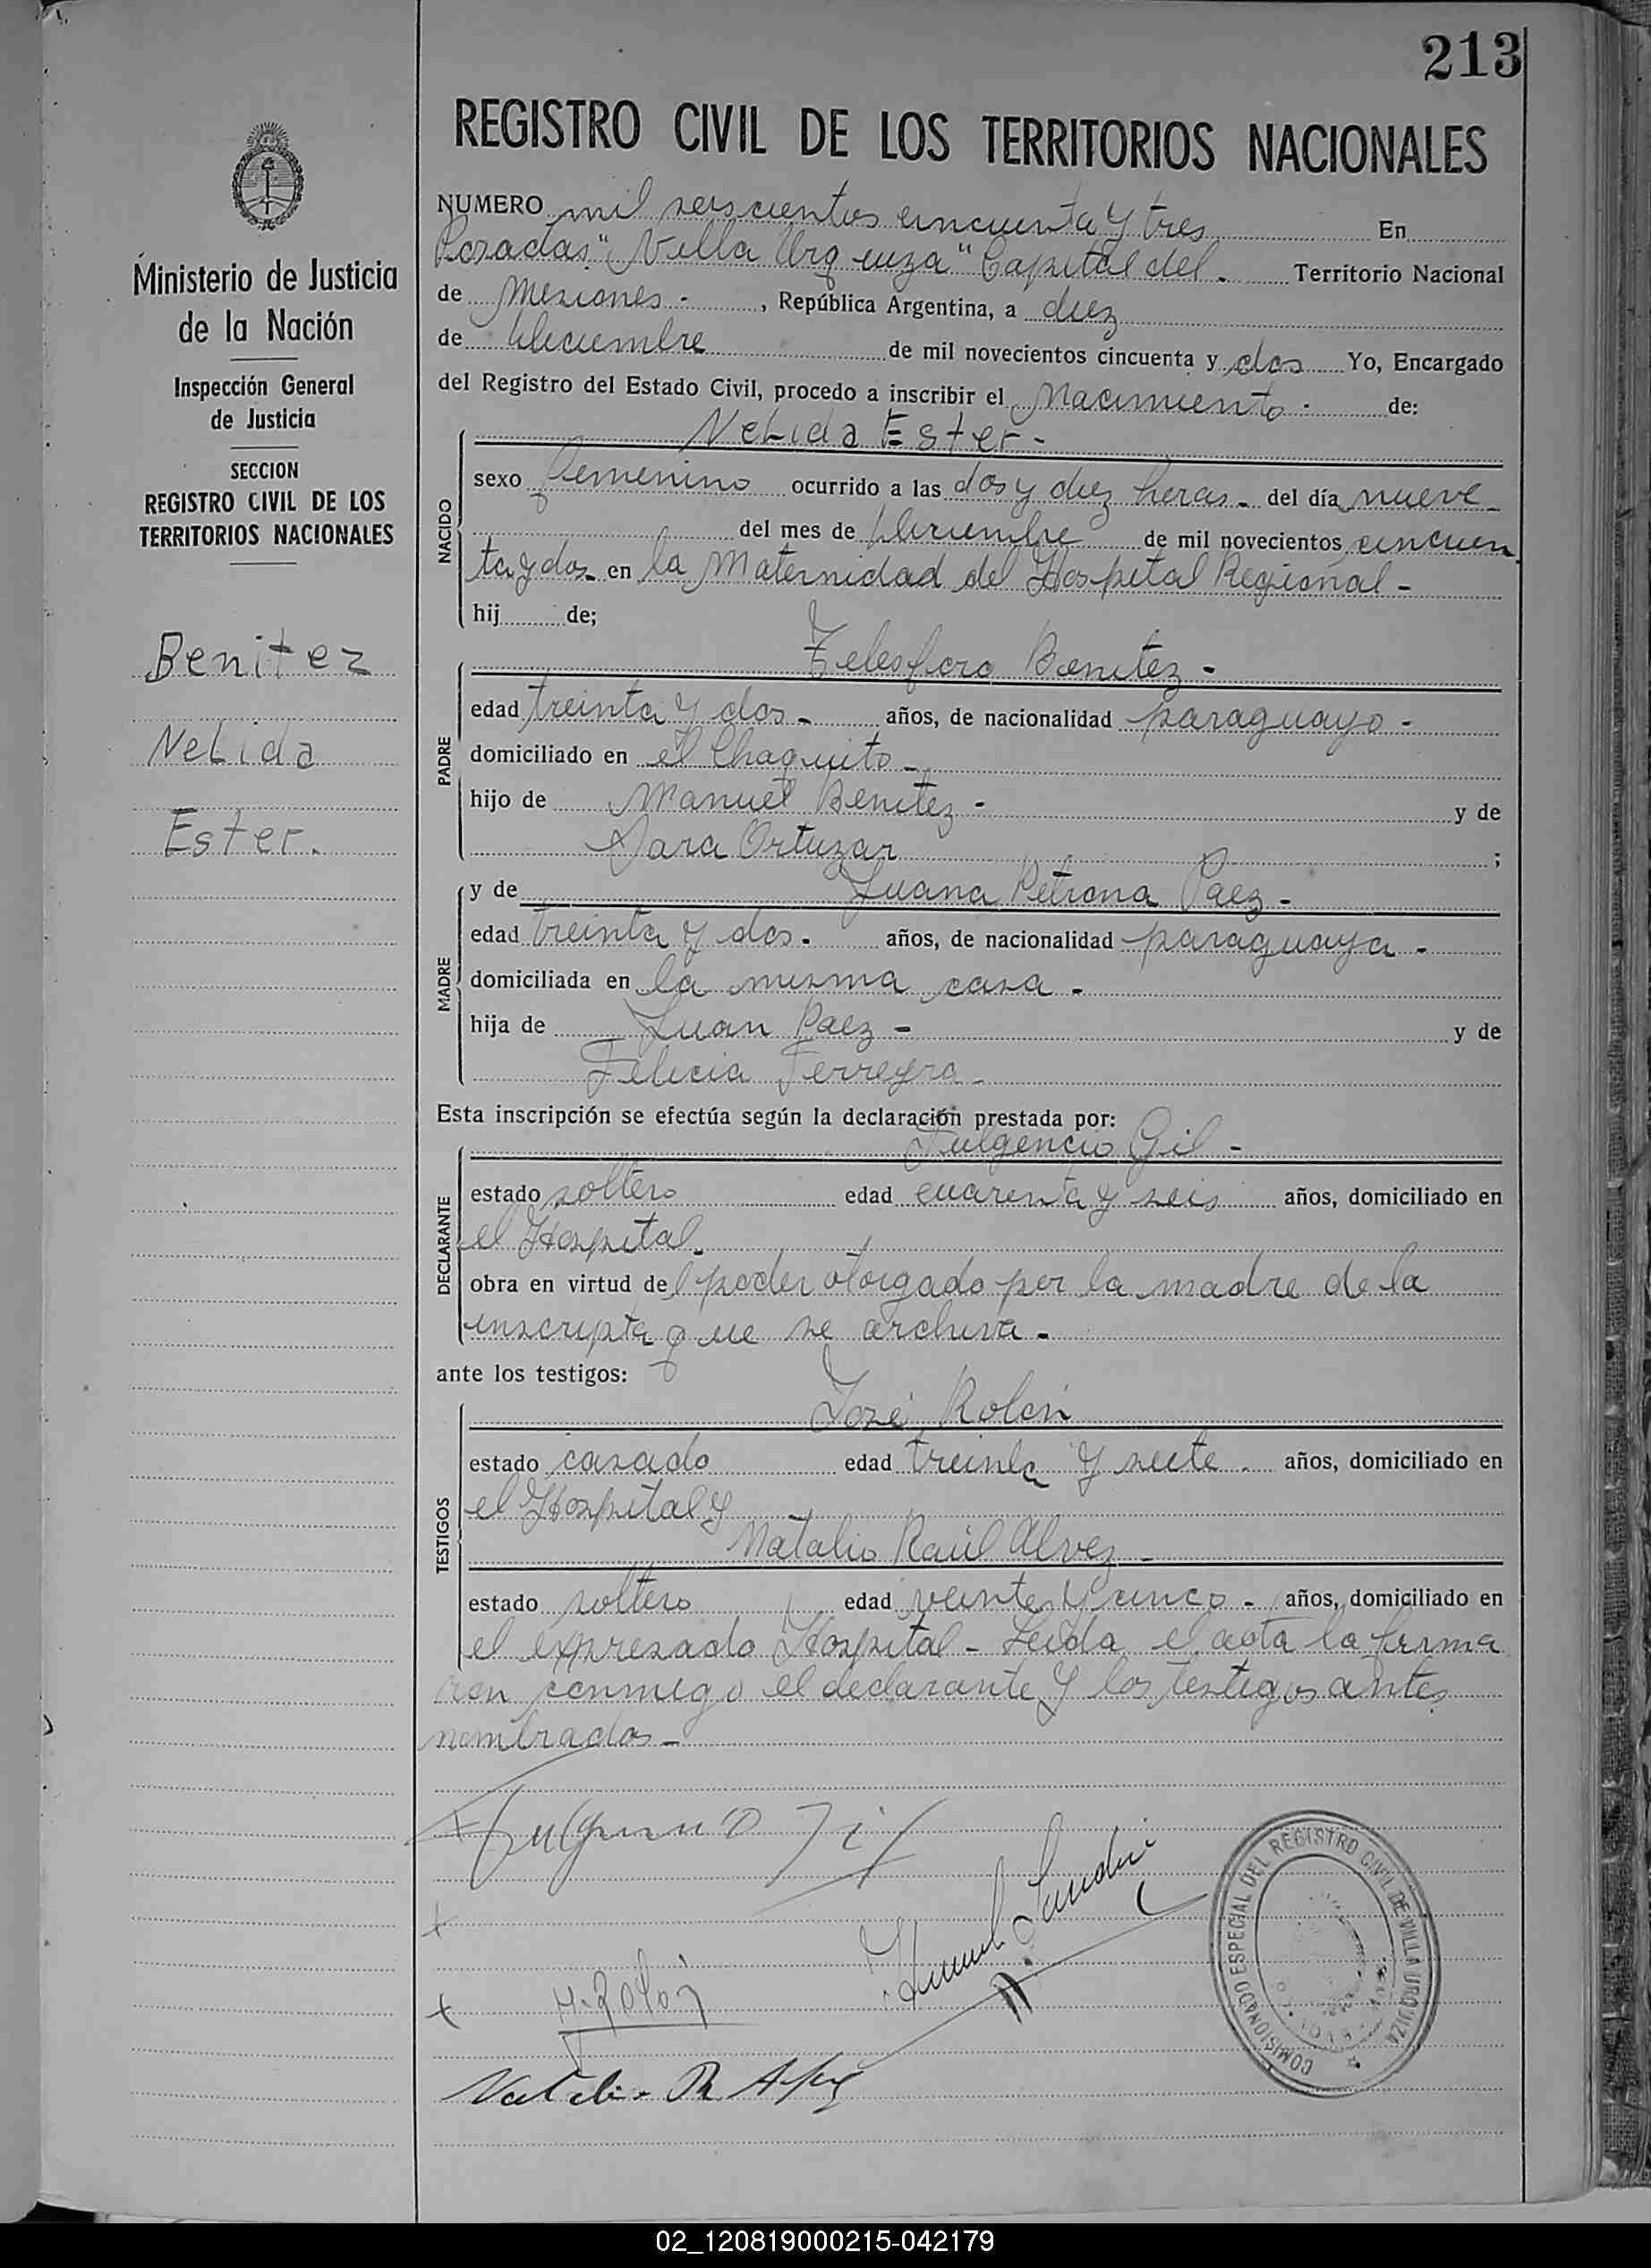 213
REGISTRO CIVIL DE LOS TERRITORIOS NACIONALES
Ministerio de Justicia
de la Nación
Inspección General
de Justicia
SECCION
REGISTRO CIVIL DE LOS
TERRITORIOS NACIONALES
Benitez
NeLida
Ester.
NUMERO mil seiscientos cincuenta y tres En
Posadas "Villa Urquiza" Capital del - Territorio Nacional
de Misiones - , República Argentina, a diez
de Diciembre de mil novecientos cincuenta y dos Yo, Encargado
del Registro del Estado Civil, procedo a inscribir el Nacimiento - de:
NeLida Ester -
NACIDO
sexo femenino ocurrido a las dos y diez horas - del día nueve
del mes de Diciembre de mil novecientos cincuen
ta y dos - en la Maternidad del Hospital Regional -
hij de;
Telesforo Benitez -
PADRE
edad treinta y dos - años, de nacionalidad paraguayo -
domiciliado en el Chaquito -
hijo de Manuel Benitez - y de
Sara Ortuzar ;
y de Juana Petrona Paez -
MADRE
edad treinta y dos - años, de nacionalidad paraguaya -
domiciliada en la misma casa -
hija de Juan Paez - y de
Felicia Ferreyra -
Esta inscripción se efectúa según la declaración prestada por:
Fulgencio Gil -
DECLARANTE
estado soltero edad cuarenta y seis años, domiciliado en
el Hospital -
obra en virtud del poder otorgado por la madre de la
inscripta que se archiva -
ante los testigos:
José Rolón
TESTIGOS
estado casado edad treinta y siete - años, domiciliado en
el Hospital y
Natalio Raúl Alvez -
estado soltero edad veinte y cinco - años, domiciliado en
el expresado Hospital - Leída el acta la firma
ron conmigo el declarante y los testigos antes
nombrados -
Fulgencio Gil
COMISIONADO ESPECIAL DEL REGISTRO CIVIL DE VILLA URQUIZA
H. Rolón
02_120819000215-042179